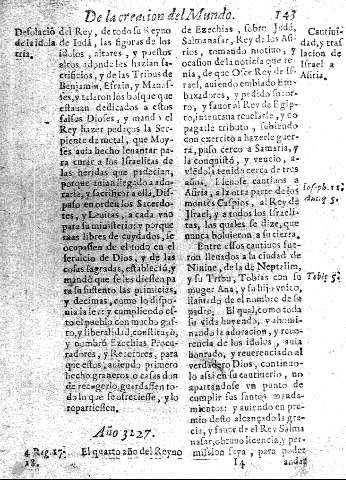 De la creacion del Mundo. 143
Desolaciõ
de la idola
tria.
del Rey, de todo su Reyno
de Iudá, las figuras de los
idolos, altares, y puestos
altos, adonde les hazian sa-
crificios, y de las Tribus de
Benjamin, Efrain, y Manas-
ses, y talaron los bosques que
estauan dedicados a estos
falsos Dioses, y mandò el
Rey hazer pedaços la Ser-
piente de metal, que Moy-
ses auia hecho leuantar pa-
ra curar a los Israelitas de
las heridas que padecian,
porque auian llegado a ado-
rarla, y sacrificar a ella. Dis-
puso en orden los Sacerdo-
tes, y Leuitas, a cada vno
para su ministerio: y porque
mas libres de cuydados, se
ocupassen de el todo en el
seruicio de Dios, y de las
cosas sagradas, estableciò, y
mandò que se les diessen pa-
ra su sustento las primicias,
y decimas, como lo dispo-
nia la ley: y cumpliendo es-
to el pueblo con mucho gus-
to, y liberalidad, constituyò,
y nombrò Ezechias Procu-
radores, y Retetores, para
que estos, auiendo primero
hecho graneros, o casas don
de recogerlo, guardassen to-
do lo que se ofreciesse, y lo
repartiessen.
Año 3227.
4 Reg. 17.
18.
El quarto año del Reyno
de Ezechias, sobre Iudá,
Salmanasar, Rey de los Asi-
rios, tomando motiuo, y
ocasion de la noticia que te-
nia, de que Osee Rey de Is-
rael, auiendo embiado Em-
baxadores, y pedido socor-
ro, y fauor al Rey de Egip-
to, intentaua reuelarse, y no
pagarle tributo, subiendo
con exercito a hazerle guer-
ra, puso cerco a Samaria, y
la conquistò, y venciò, a-
uiendola tenido cerca de tres
años. Lleuose cautiuos a
Asiria, a la otra parte de los
montes Caspios, al Rey de
Israel, y a todos los Israeli-
tas, los quales se dize, que
nunca boluieron a su tierra.
Entre estos cautiuos fue-
ron lleuados a la ciudad de
Niniue, de la de Neptalim,
y su Tribu, Tobias con su
muger Ana, y su hijo vnico,
llamado de el nombre de su
padre. El qual, como toda
su vida huyendo, y abomi-
nando la adoracion, y reue-
rencia de los idolos, auia
honrado, y reuerenciado al
verdadero Dios, continuo-
lo assi en su cautiuerio, no
apartandose vn punto de
cumplir sus santos manda-
mientos: y auiendo en pre-
mio desto alcançado la gra-
cia, y fauor de el Rey Salma
nasar, obtuuo licencia, y per-
mission suya, para poder
I4 andar
Cautiui-
dad, y tras
lacion de
Israel a
Asiria.
Ioseph. 11.
Antiq. 5.
Tobiæ 5.